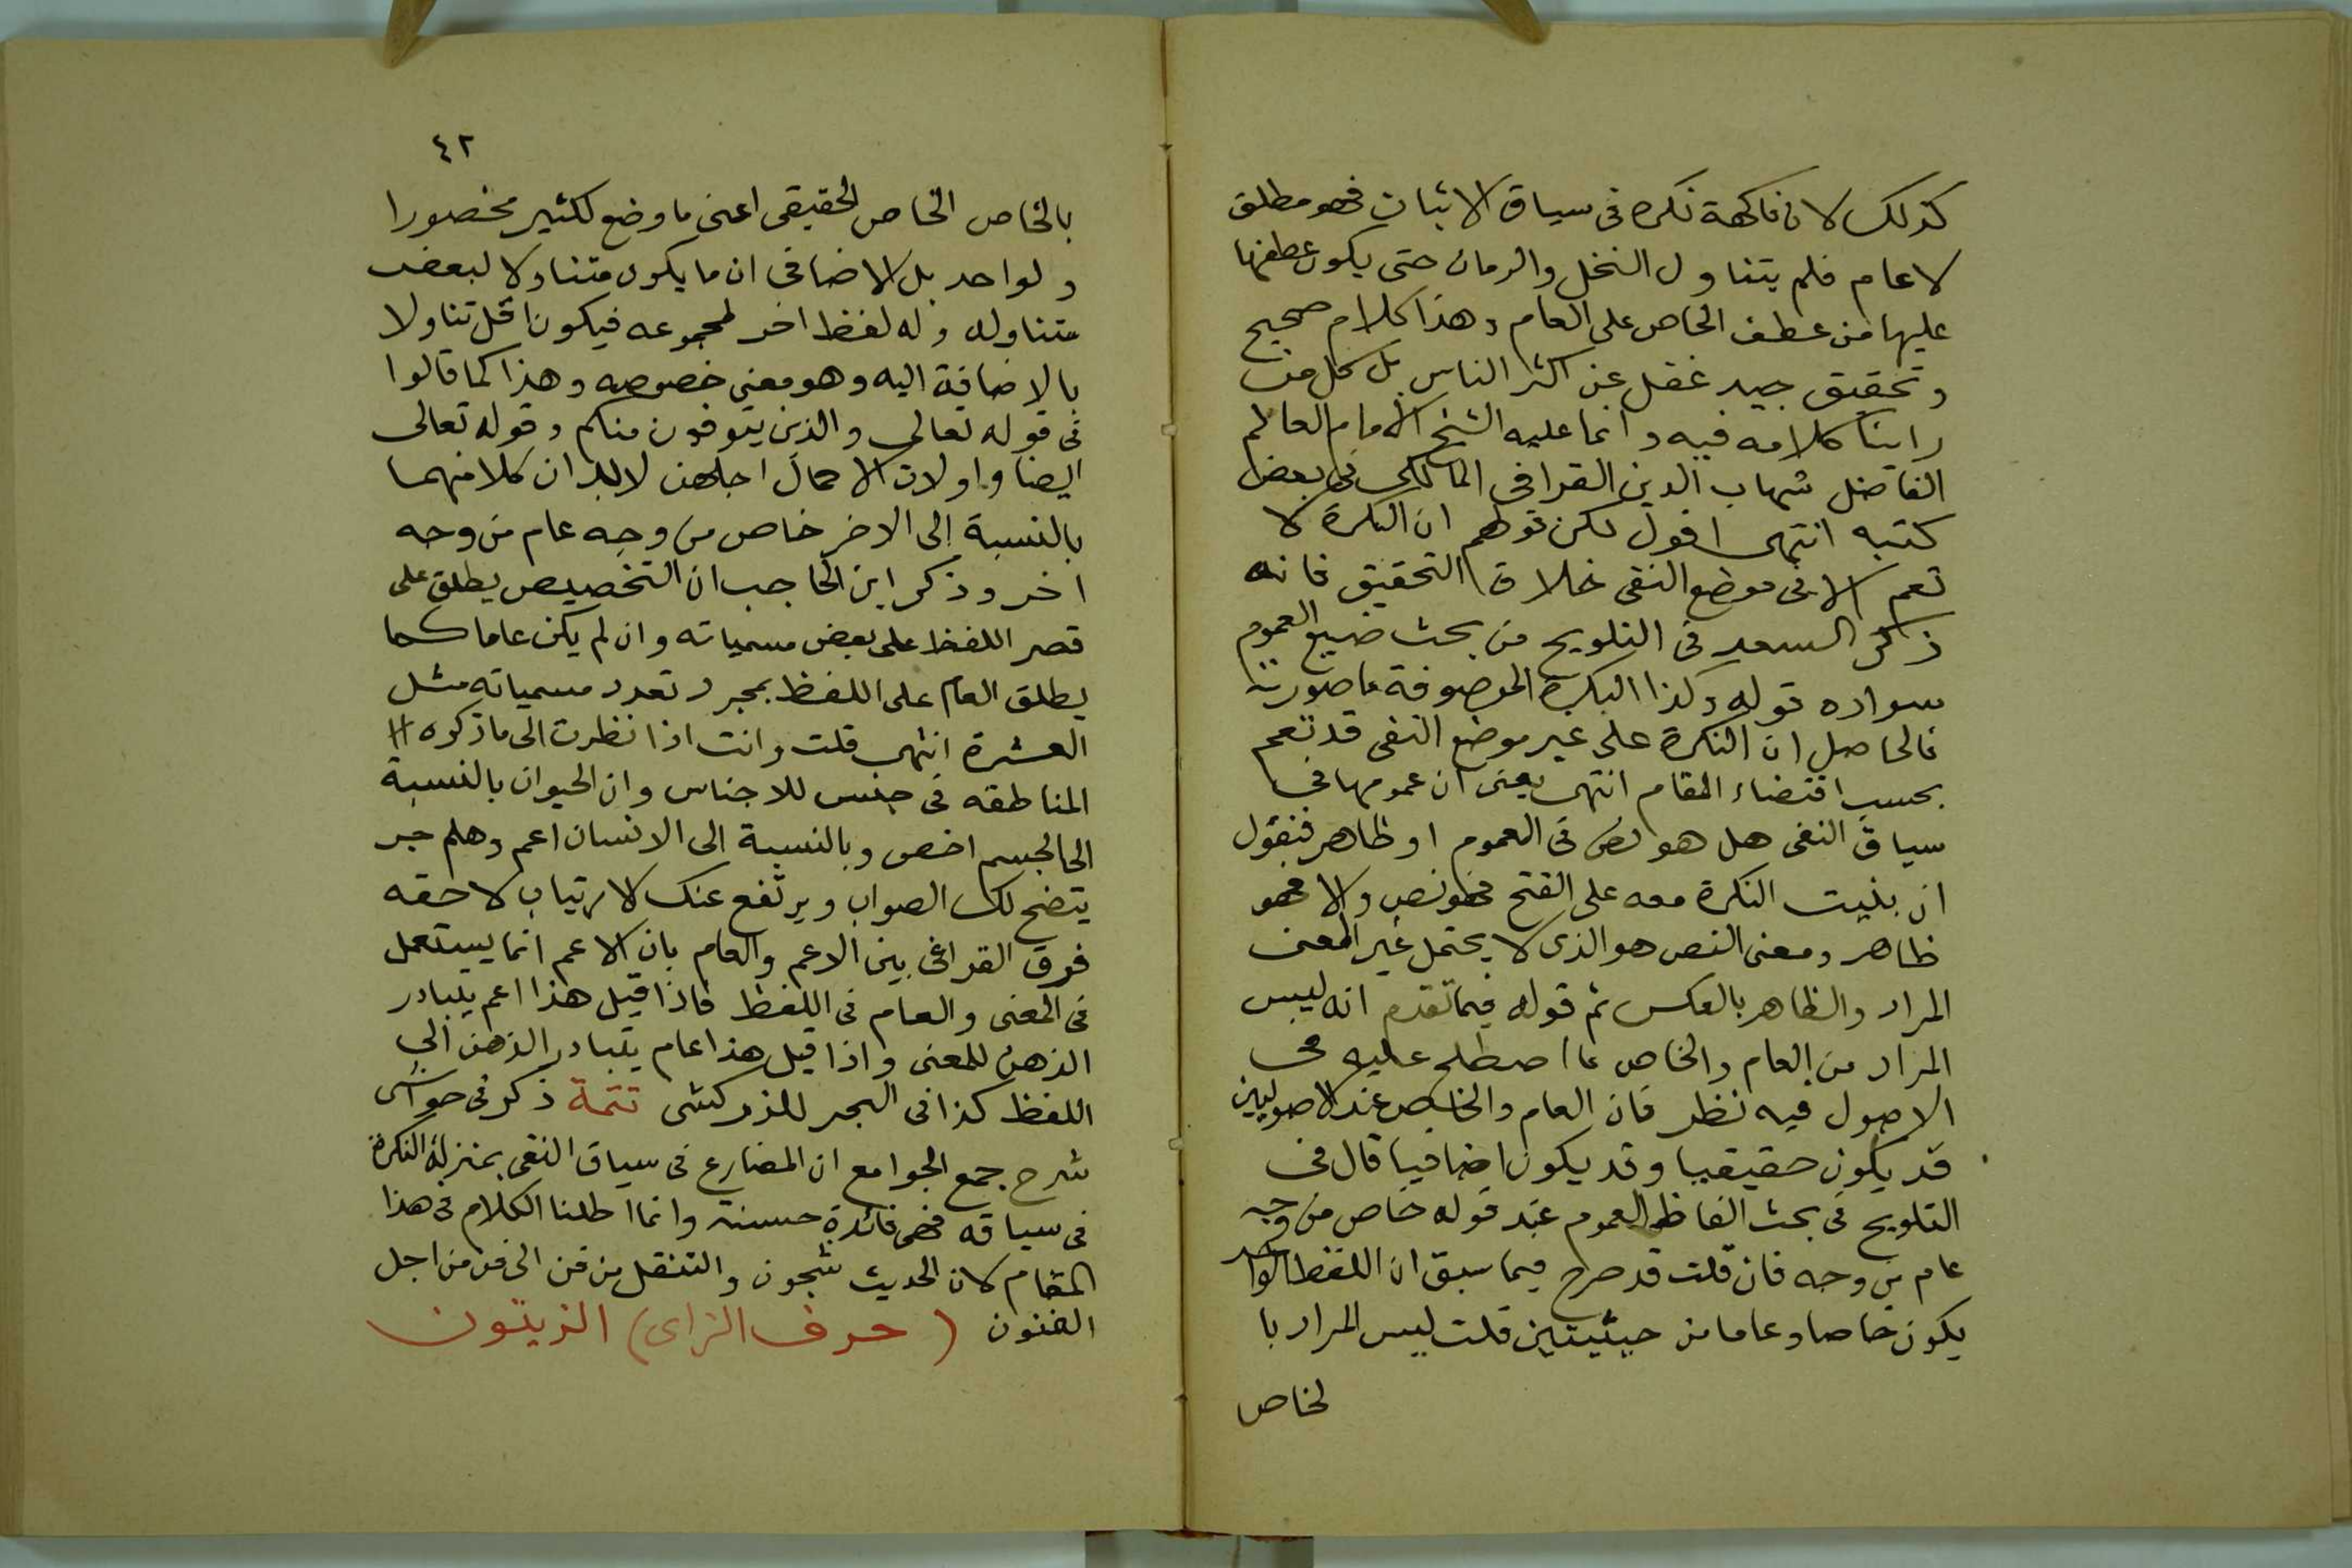 كذلك لان فاكهة نكره فى سياق الاثبات فهو مطلق
لا عام فلم يتناول النخل والرمان حتى يكون عطفها
عليها من عطف الخاص على العام وهذا كلام صحيح
وتحقيق جيد غفل عن اكثر الناس بل كل من
راينا كلامه فيه وانما عليه الشيخ الامام العالم
الفاضل شهاب الدين القرافى المالكى فى بعض
كتبه انتهى اقول لكن قولهم ان النكرة لا
تعم الا فى موضع النفى خلاف التحقيق فانه
ذكر السعد فى التلويح من بحث صيغ العموم
سواده قوله وكذا النكرة الموصوفة ما صورته
فالحاصل ان النكرة على غير موضع النفى قد تعم
بحسب اقتضاء المقام انتهى يعنى ان عمومها فى
سياق النفى هل هو نص فى العموم او ظاهر فنقول
ان بنيت النكرة معه على الفتح فهو نص والا فهو
ظاهر ومعنى النص هو الذى لا يحتمل غير المعنى
المراد والظاهر بالعكس ثم قوله فيما تقدم انه ليس
المراد من العام والخاص ما اصطلح عليه فى
الاصول فيه نظر فان العام والخاص عند الاصوليين
قد يكون حقيقيا وقد يكون اضافيا قال فى
التلويح فى بحث الفاظ العموم عند قوله خاص من وجه
عام من وجه فان قلت قد صرح فيما سبق ان اللفظ الواحد
يكون خاصا وعاما من حيثيتين قلت ليس المراد با
لخاص
٤٢
بالخاص الخاص الحقيقى اعنى ما وضع لكثير محصورا
ولواحد بل الاضافى ان ما يكون متناولا لبعض
متناوله وله لفظ اخر لمجموعه فيكون اقل تناولا
بالاضافة اليه وهو معنى خصوصه وهذا كما قالوا
فى قوله تعالى والذين يتوفون منكم وقوله تعالى
ايضا واولات الاحمال اجلهن ان كلا منهما
بالنسبة الى الاخر خاص من وجه عام من وجه
اخر وذكر ابن الحاجب ان التخصيص يطلق على
قصر اللفظ على بعض مسمياته وان لم يكن عاما كما
يطلق العام على اللفظ بمجرد تعدد مسمياته مثل
العشرة انتهى قلت وانت اذا نظرت الى ما ذكره
المناطقه فى جنس للاجناس وان الحيوان بالنسبة
الى الجسم اخص وبالنسبة الى الانسان اعم وهلم جر
يتضح لك الصواب ويرتفع عنك الارتياب لاحقه
فرق القرافى بين الاعم والعام بان الاعم انما يستعمل
فى المعنى والعام فى اللفظ فاذا قيل هذا اعم يتبادر
الذهن للمعنى واذا قيل هذا عام يتبادر الذهن الى
اللفظ كذا فى البحر للزركشى تتمة ذكر فى حواشى
شرح جمع الجوامع ان المضارع فى سياق النفى بمنزلة النكرة
فى سياقه فهى فائدة حسنة وانما اطلنا الكلام فى هذا
المقام لان الحديث شجون والتنقل من فن الى فن من اجل
الفنون (حرف الزاى) الزيتون